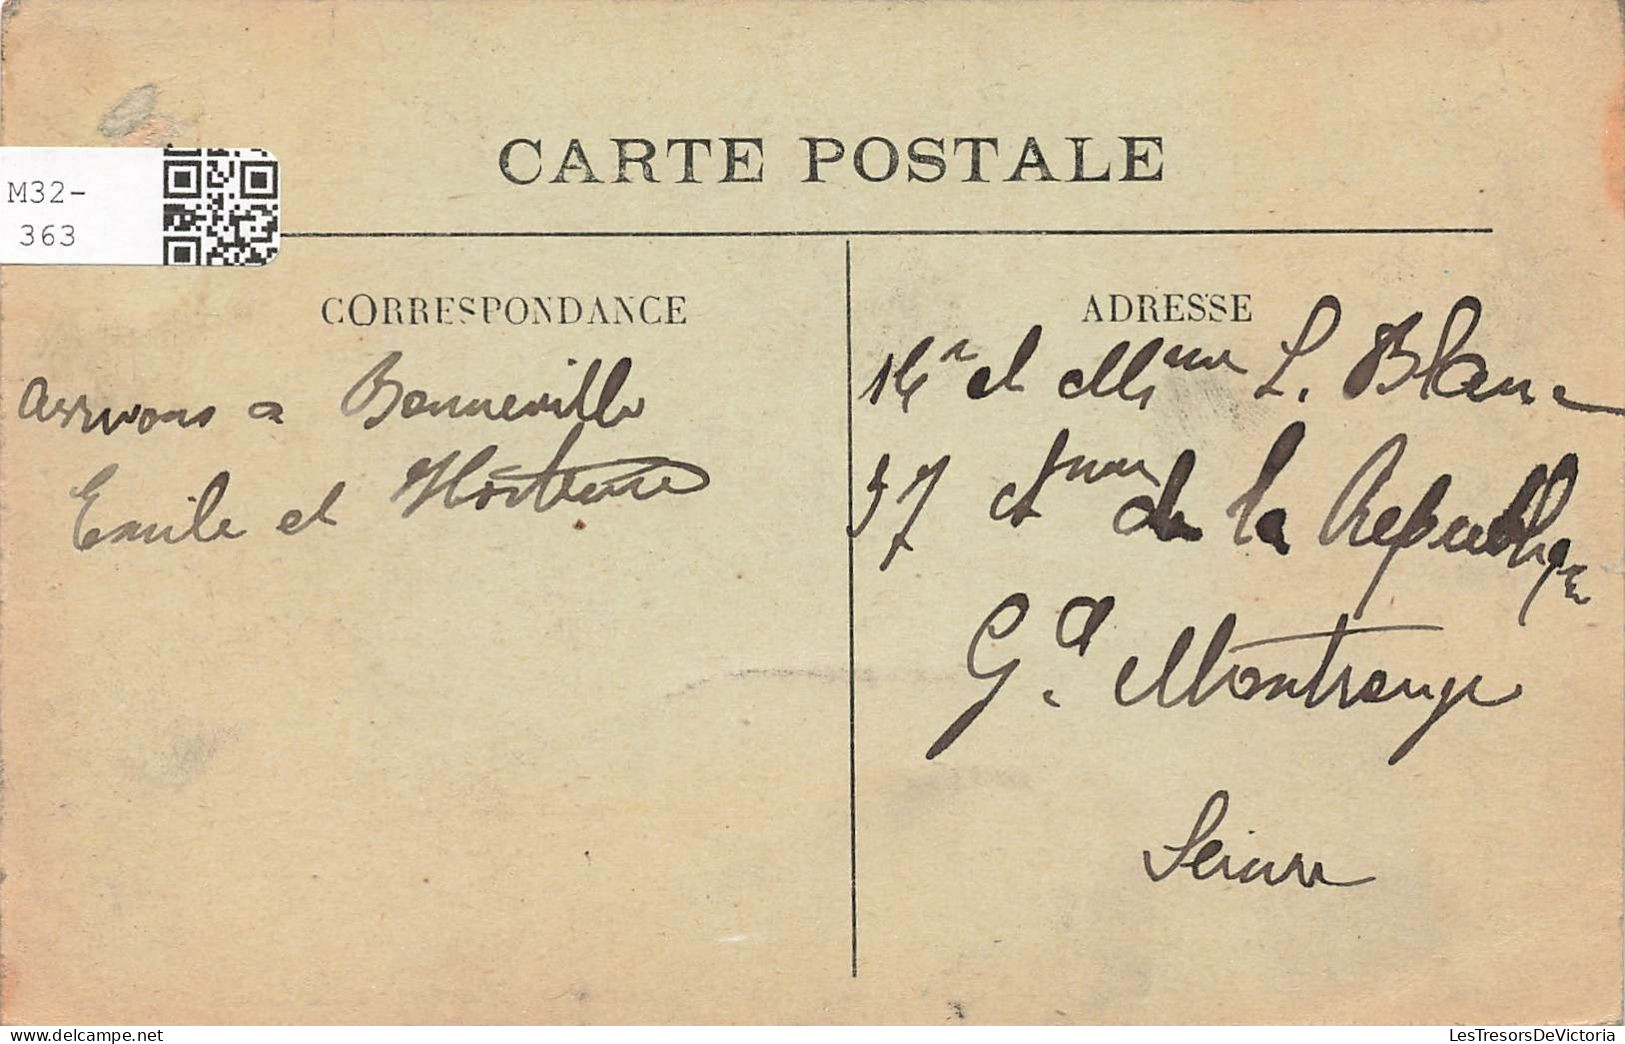 CARTE POSTALE
M32-
363
CORRESPONDANCE
arrivons a Bonneville
Emile et Hortense
ADRESSE
Mr et Mme L. Blanc
37 de la République
Gd Montrouge
Seine
LesTresorsDeVictoria